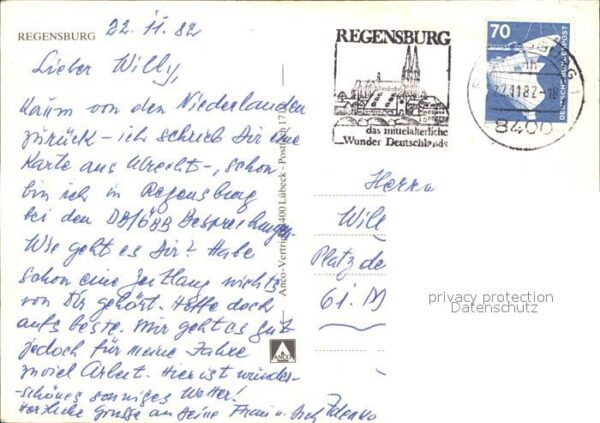 REGENSBURG
22. 11. 82
Lieber Willy,
Kaum von den Niederlanden
zurück – ich schrieb Dir eine
Karte aus Utrecht –, schon
bin ich in Regensburg
bei den DB/ÖBB Besprechungen.
Wie geht es Dir? Habe
schon eine Zeitlang nichts
von Dir gehört. Hoffe doch
aufs beste. Mir geht es gut
jedoch für meine Jahre
zuviel Arbeit. Hier ist wunder-
-schönes sonniges Wetter!
Herzliche Grüsse an Deine Frau u. Dich Zdenko
Anco-Vertrieb 2400 Lübeck - Postfach 17
ANCO
REGENSBURG
das mittelalterliche
Wunder Deutschlands
70
DEUTSCHE BUNDESPOST
22.11.82-18
8400
Herrn
Will
Platz de
61. M
privacy protection
Datenschutz